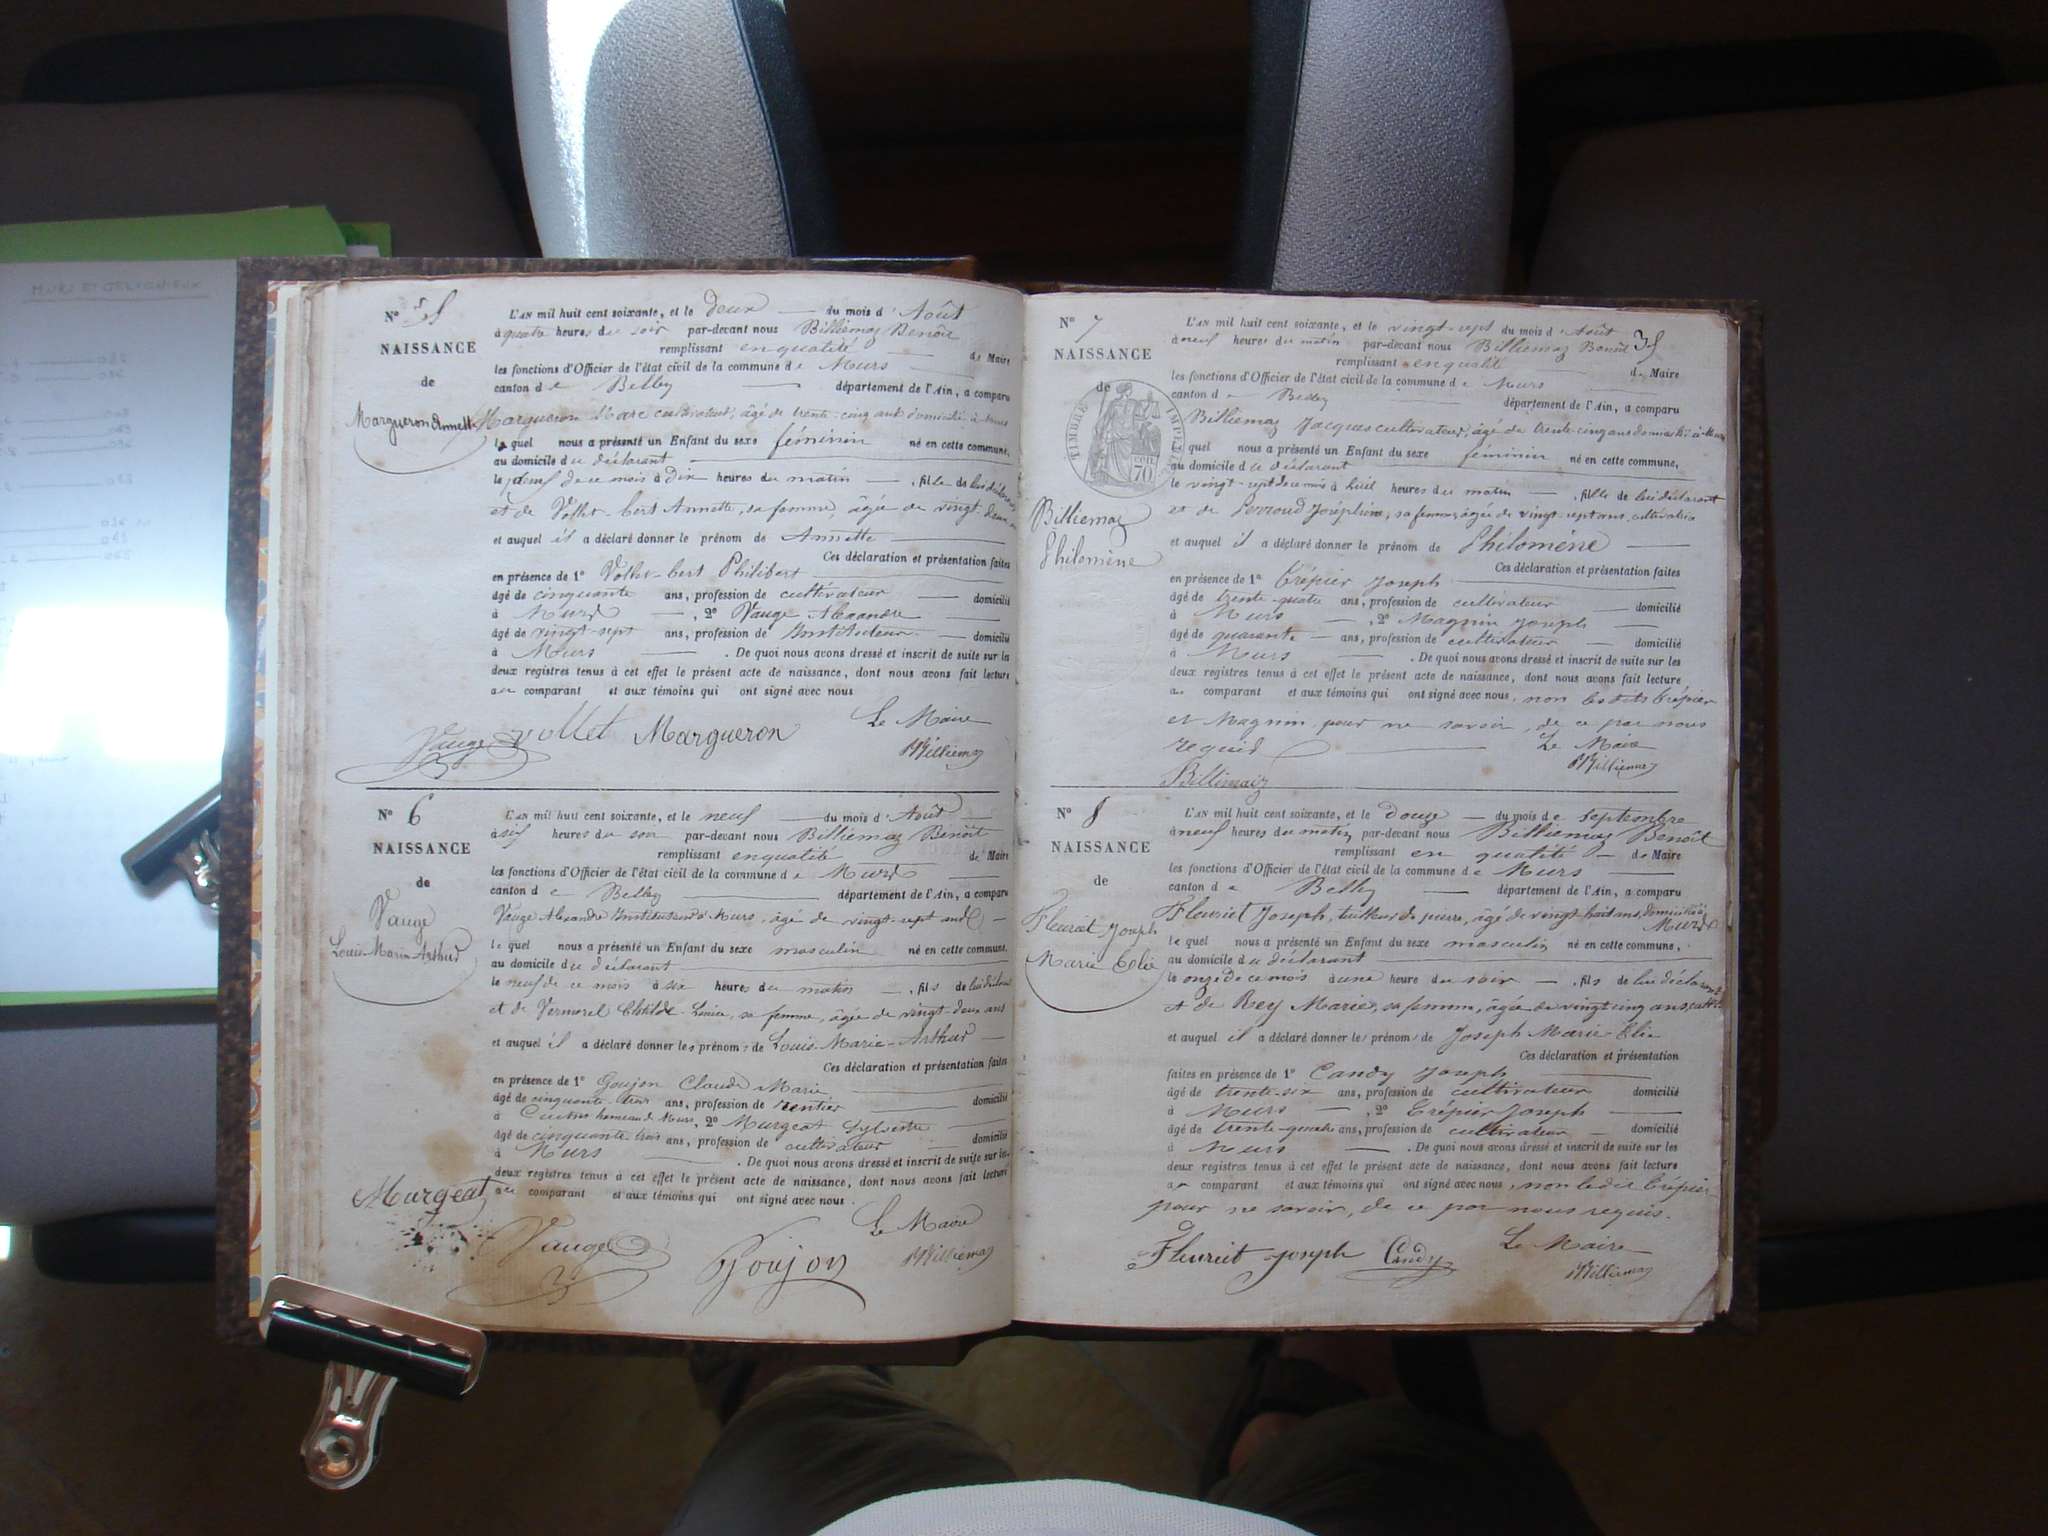 MURS ET GELIGNIEUX
N° 5
NAISSANCE
de
Margueron Annette
L'AN mil huit cent soixante, et le deux du mois d'Août
à quatre heures du soir par-devant nous Billiemaz Benoît
remplissant en qualité de Maire
les fonctions d'Officier de l'état civil de la commune de Murs
canton de Belley département de l'Ain, a comparu
Margueron Marc cultivateur, âgé de trente-cinq ans domicilié à Murs
lequel nous a présenté un Enfant du sexe féminin né en cette commune,
au domicile du déclarant
le deux de ce mois à Dix heures du matin, fille de lui déclarant
et de Vollet-bert Annette, sa femme, âgée de vingt-deux ans
et auquel il a déclaré donner le prénom de Annette
Ces déclaration et présentation faites
en présence de 1° Vollet-bert Philibert
âgé de cinquante ans, profession de cultivateur domicilié
à Murs, 2° Vauge Alexandre
âgé de vingt-sept ans, profession de Instituteur domicilié
à Murs. De quoi nous avons dressé et inscrit de suite sur les
deux registres tenus à cet effet le présent acte de naissance, dont nous avons fait lecture
au comparant et aux témoins qui ont signé avec nous
Le Maire
Vauge vollet Margueron BBilliemaz
N° 6
NAISSANCE
de
Vauge
Louis Marie Arthur
L'AN mil huit cent soixante, et le neuf du mois d'Août
à six heures du soir par-devant nous Billiemaz Benoît
remplissant en qualité de Maire
les fonctions d'Officier de l'état civil de la commune de Murs
canton de Belley département de l'Ain, a comparu
Vauge Alexandre Instituteur à Murs, âgé de vingt-sept ans
lequel nous a présenté un Enfant du sexe masculin né en cette commune,
au domicile du déclarant
le neuf de ce mois à six heures du matin, fils de lui déclarant
et de Vermorel Clotilde Louise, sa femme, âgée de vingt-deux ans
et auquel il a déclaré donner les prénoms de Louis-Marie-Arthur
Ces déclaration et présentation faites
en présence de 1° Goujon Claude Marie
âgé de cinquante-trois ans, profession de rentier domicilié
à hameau de Murs, 2° Murgeat Sylvestre
âgé de cinquante trois ans, profession de cultivateur domicilié
à Murs. De quoi nous avons dressé et inscrit de suite sur les
deux registres tenus à cet effet le présent acte de naissance, dont nous avons fait lecture
au comparant et aux témoins qui ont signé avec nous.
Murgeat
Le Maire
Vauge Goujon BBilliemaz
35
N° 7
NAISSANCE
de
TIMBRE IMPERIAL
70
Billiemaz
Philomène
L'AN mil huit cent soixante, et le vingt-sept du mois d'Août
à neuf heures du matin par-devant nous Billiemaz Benoît
remplissant en qualité de Maire
les fonctions d'Officier de l'état civil de la commune de Murs
canton de Belley département de l'Ain, a comparu
Billiemaz Jacques cultivateur, âgé de trente-cinq ans domicilié à Murs
lequel nous a présenté un Enfant du sexe féminin né en cette commune,
au domicile du déclarant
le vingt-sept de ce mois à huit heures du matin, fille de lui déclarant
et de Perroud Joséphine, sa femme, âgée de vingt-sept ans, cultivatrice
et auquel il a déclaré donner le prénom de Philomène
Ces déclaration et présentation faites
en présence de 1° Crépier Joseph
âgé de trente-quatre ans, profession de cultivateur domicilié
à Murs, 2° Magnin Joseph
âgé de quarante ans, profession de cultivateur domicilié
à Murs. De quoi nous avons dressé et inscrit de suite sur les
deux registres tenus à cet effet le présent acte de naissance, dont nous avons fait lecture
au comparant et aux témoins qui ont signé avec nous, non les dits Crépier
et Magnin pour ne savoir, de ce par nous
requis
Le Maire
Billiemaz BBilliemaz
N° 8
NAISSANCE
de
Fleuret Joseph
Marie Elie
L'AN mil huit cent soixante, et le douze du mois de septembre
à neuf heures du matin, par-devant nous Billiemaz Benoît
remplissant en qualité de Maire
les fonctions d'Officier de l'état civil de la commune de Murs
canton de Belley département de l'Ain, a comparu
Fleuret Joseph, tailleur de pierre, âgé de vingt-huit ans, domicilié à
Murs
lequel nous a présenté un Enfant du sexe masculin né en cette commune,
au domicile du déclarant
le onze de ce mois à une heure du soir, fils de lui déclarant
et de Rey Marie, sa femme, âgée de vingt cinq ans,
et auquel il a déclaré donner les prénoms de Joseph Marie Elie
Ces déclaration et présentation
faites en présence de 1° Candy Joseph
âgé de trente-six ans, profession de cultivateur domicilié
à Murs, 2° Crépier Joseph
âgé de trente-quatre ans, profession de cultivateur domicilié
à Murs. De quoi nous avons dressé et inscrit de suite sur les
deux registres tenus à cet effet le présent acte de naissance, dont nous avons fait lecture
au comparant et aux témoins qui ont signé avec nous, non ledit Crépier
pour ne savoir, de ce par nous requis.
Le Maire
Fleuret Joseph Candy BBilliemaz